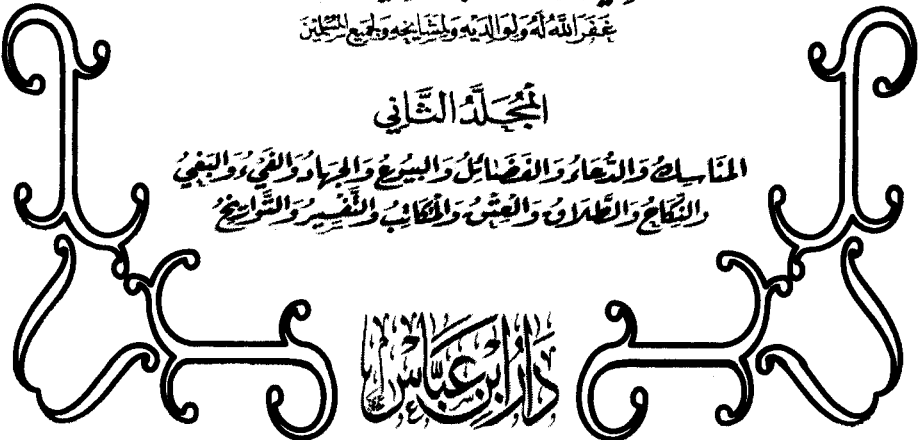 غَفَرَ اللَّهُ لَهُ وَلِوَالِدَيْهِ وَلِمَشَايِخِهِ وَلِجَمِيعِ المُسْلِمِينَ
المُجَلَّدُ الثَّانِي
المَنَاسِكُ وَالدُّعَاءُ وَالفَضَائِلُ وَالبُيُوعُ وَالجِهَادُ وَالفَيْءُ وَالبَغْيُ
وَالنِّكَاحُ وَالطَّلَاقُ وَالعِتْقُ وَالمُكَاتَبُ وَالتَّفْسِيرُ وَالتَّوَارِيخُ
دَارُ ابْنِ عَبَّاسٍ